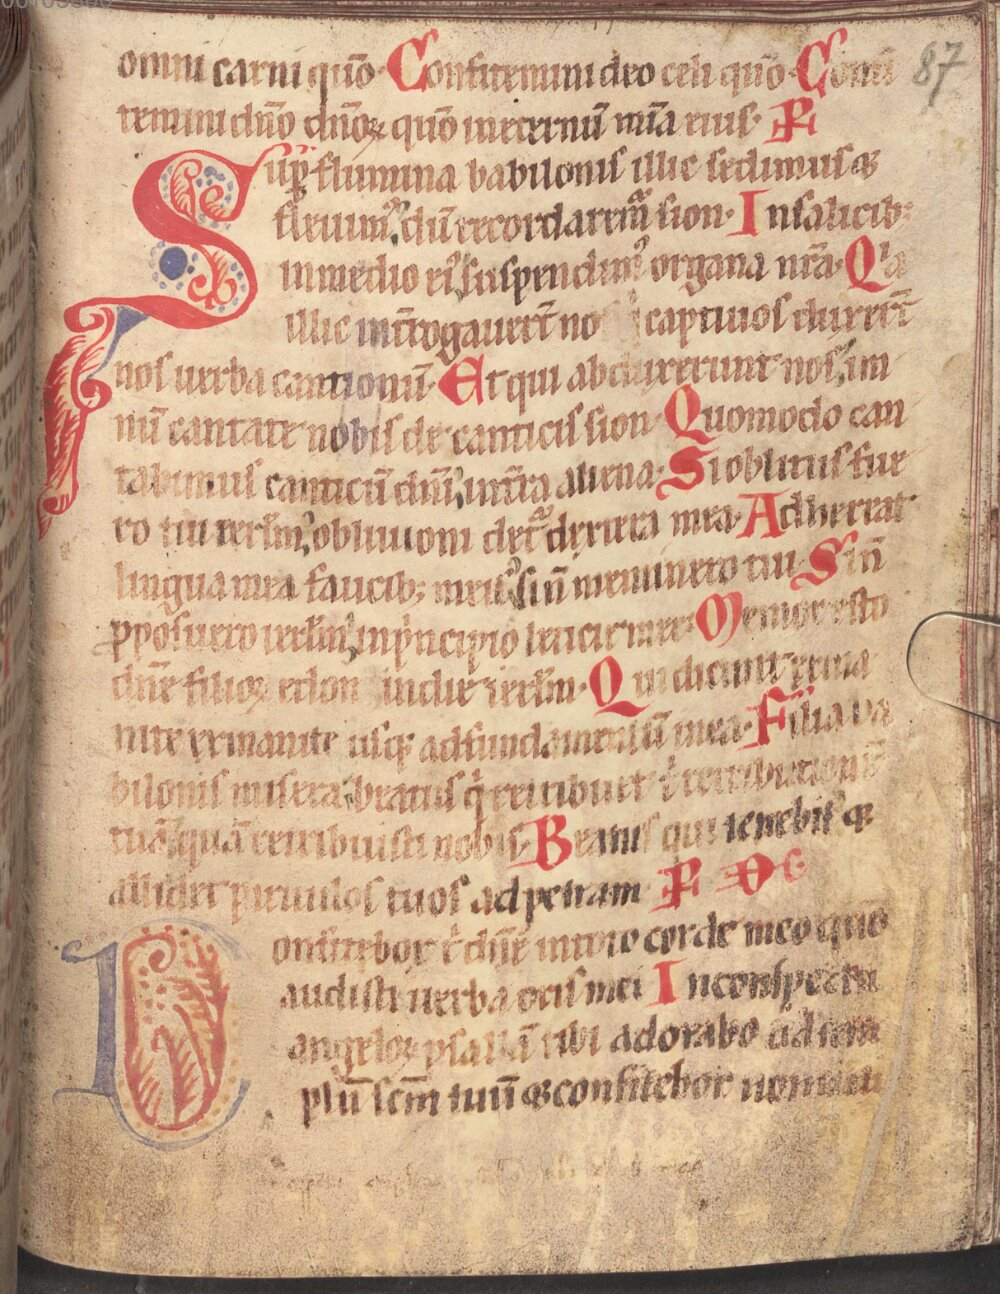 87
omni carni qm̄o Confitemini deo celi qm̄o Confi
temini dn̄o dn̄oꝝ qm̄o in eternū mīa eius
Sup̄ flumina babilonis illic sedimus ⁊
fleuim᷒ dū recordarem᷒ sion In salicib;
in medio ei᷒ suspendim᷒ organa nr̄a Qͥa
illic int̄rogauer̄t nos captiuos duxer̄t
nos uerba cantionū Et qui abduxerunt nos ym
nū cantate nobis de canticis sion Quomodo can
tabimus canticū dn̄i in t̄ra aliena Si oblitus fue
ro tui ierl̄m obliuioni det᷒ dextera mea Adhereat
lingua mea faucib; meis si n̄ meminero tui Si n̄
ꝓposuero ierl̄m in pͥncipio leticie mee Memor esto
dn̄e filioꝝ edon in die ierl̄m Qui dicunt exina
nite exinanite usqꝫ ad fundamentū in ea Filia ba
bilonis misera beatus qͥ retribuet tͥ retributionē
tuā quā retribuisti nobis Beatus qui tenebit ⁊
allidet paruulos tuos ad petram
Confitebor tͥ dn̄e in toto corde meo qm̄o
audisti uerba oris mei In conspectu
angeloꝝ psallā tibi adorabo ad tem
plū sc̄m tuū ⁊ confitebor nomini